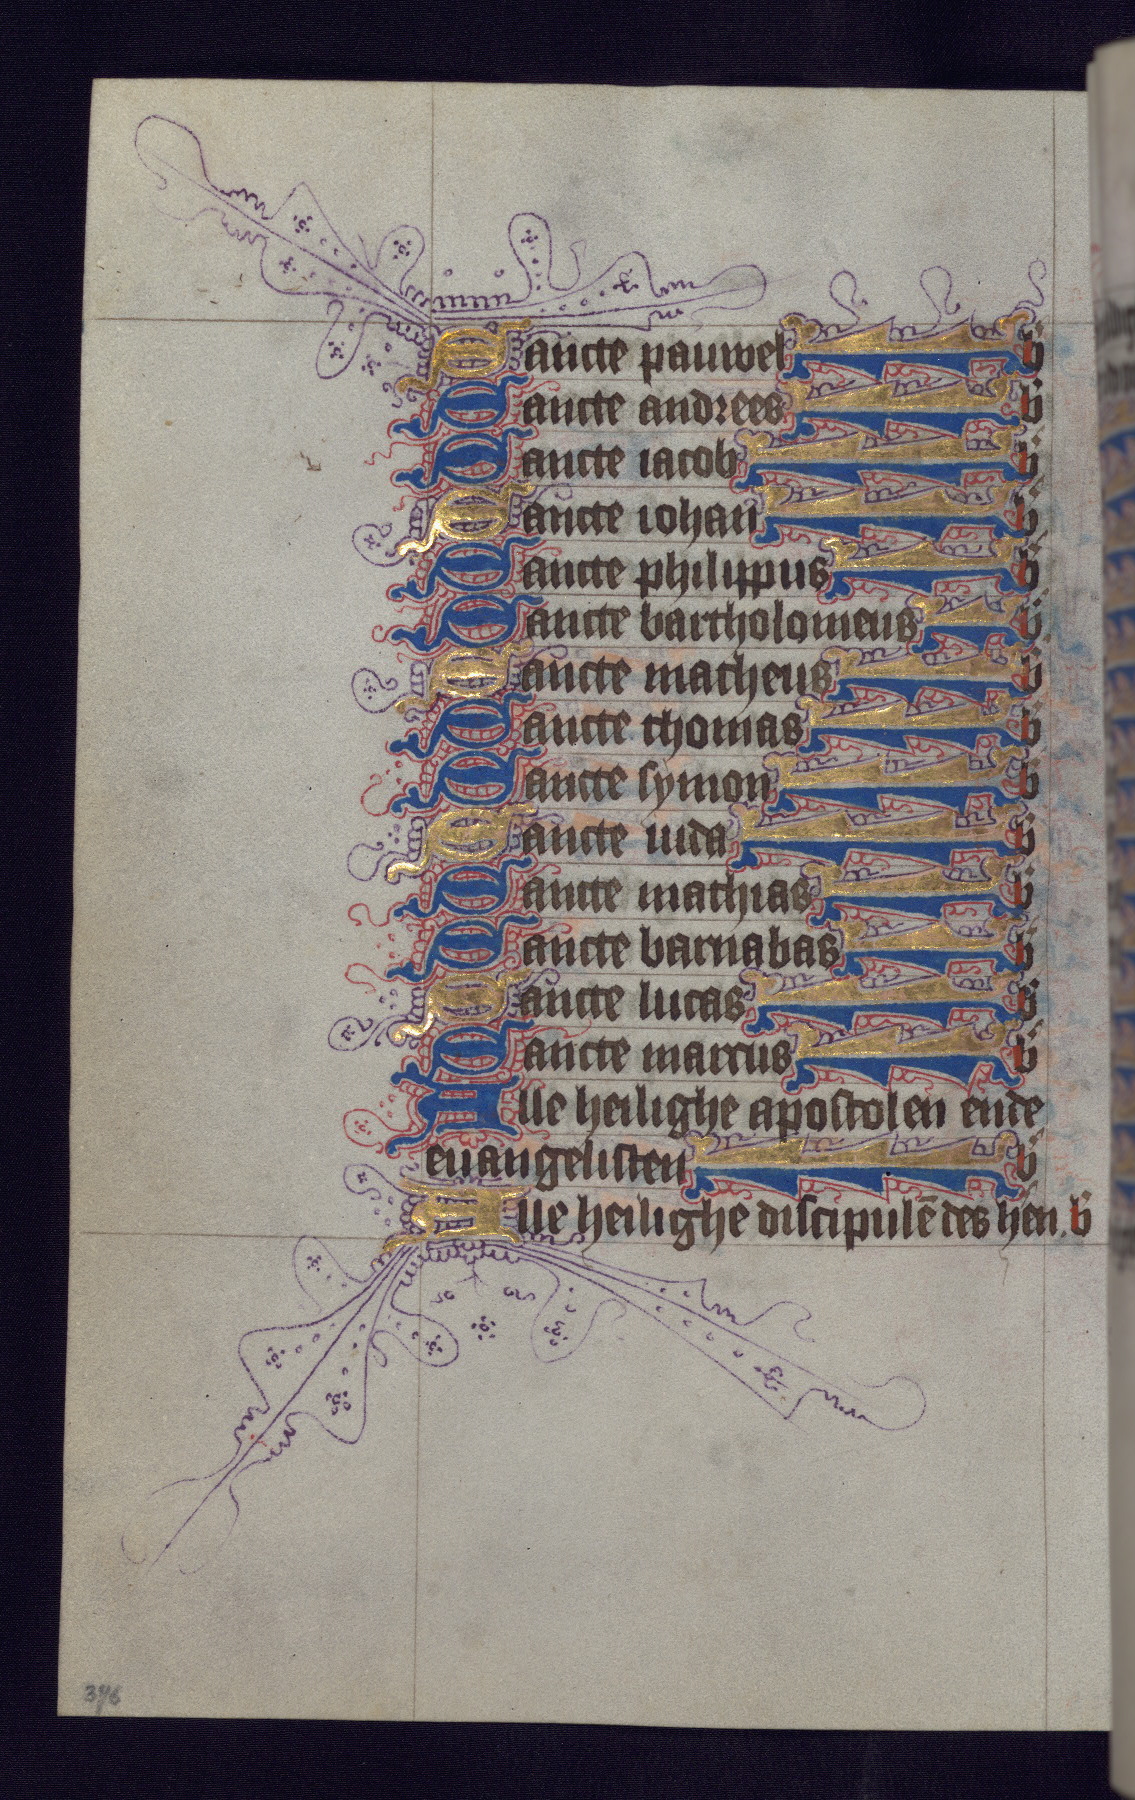 Sancte pauwel b̈
Sancte andrees b̈
Sancte iacob b̈
Sancte iohan̄ b̈
Sancte philippus b̈
Sancte bartholomeus b̈
Sancte matheus b̈
Sancte thomas b̈
Sancte symon b̈
Sancte iuda b̈
Sancte mathias b̈
Sancte barnabas b̈
Sancte lucas b̈
Sancte marcus b̈
Alle heilighe apostolen ende
euangelisten b̈
Alle heilighe discipulē des hēn. b̈
376